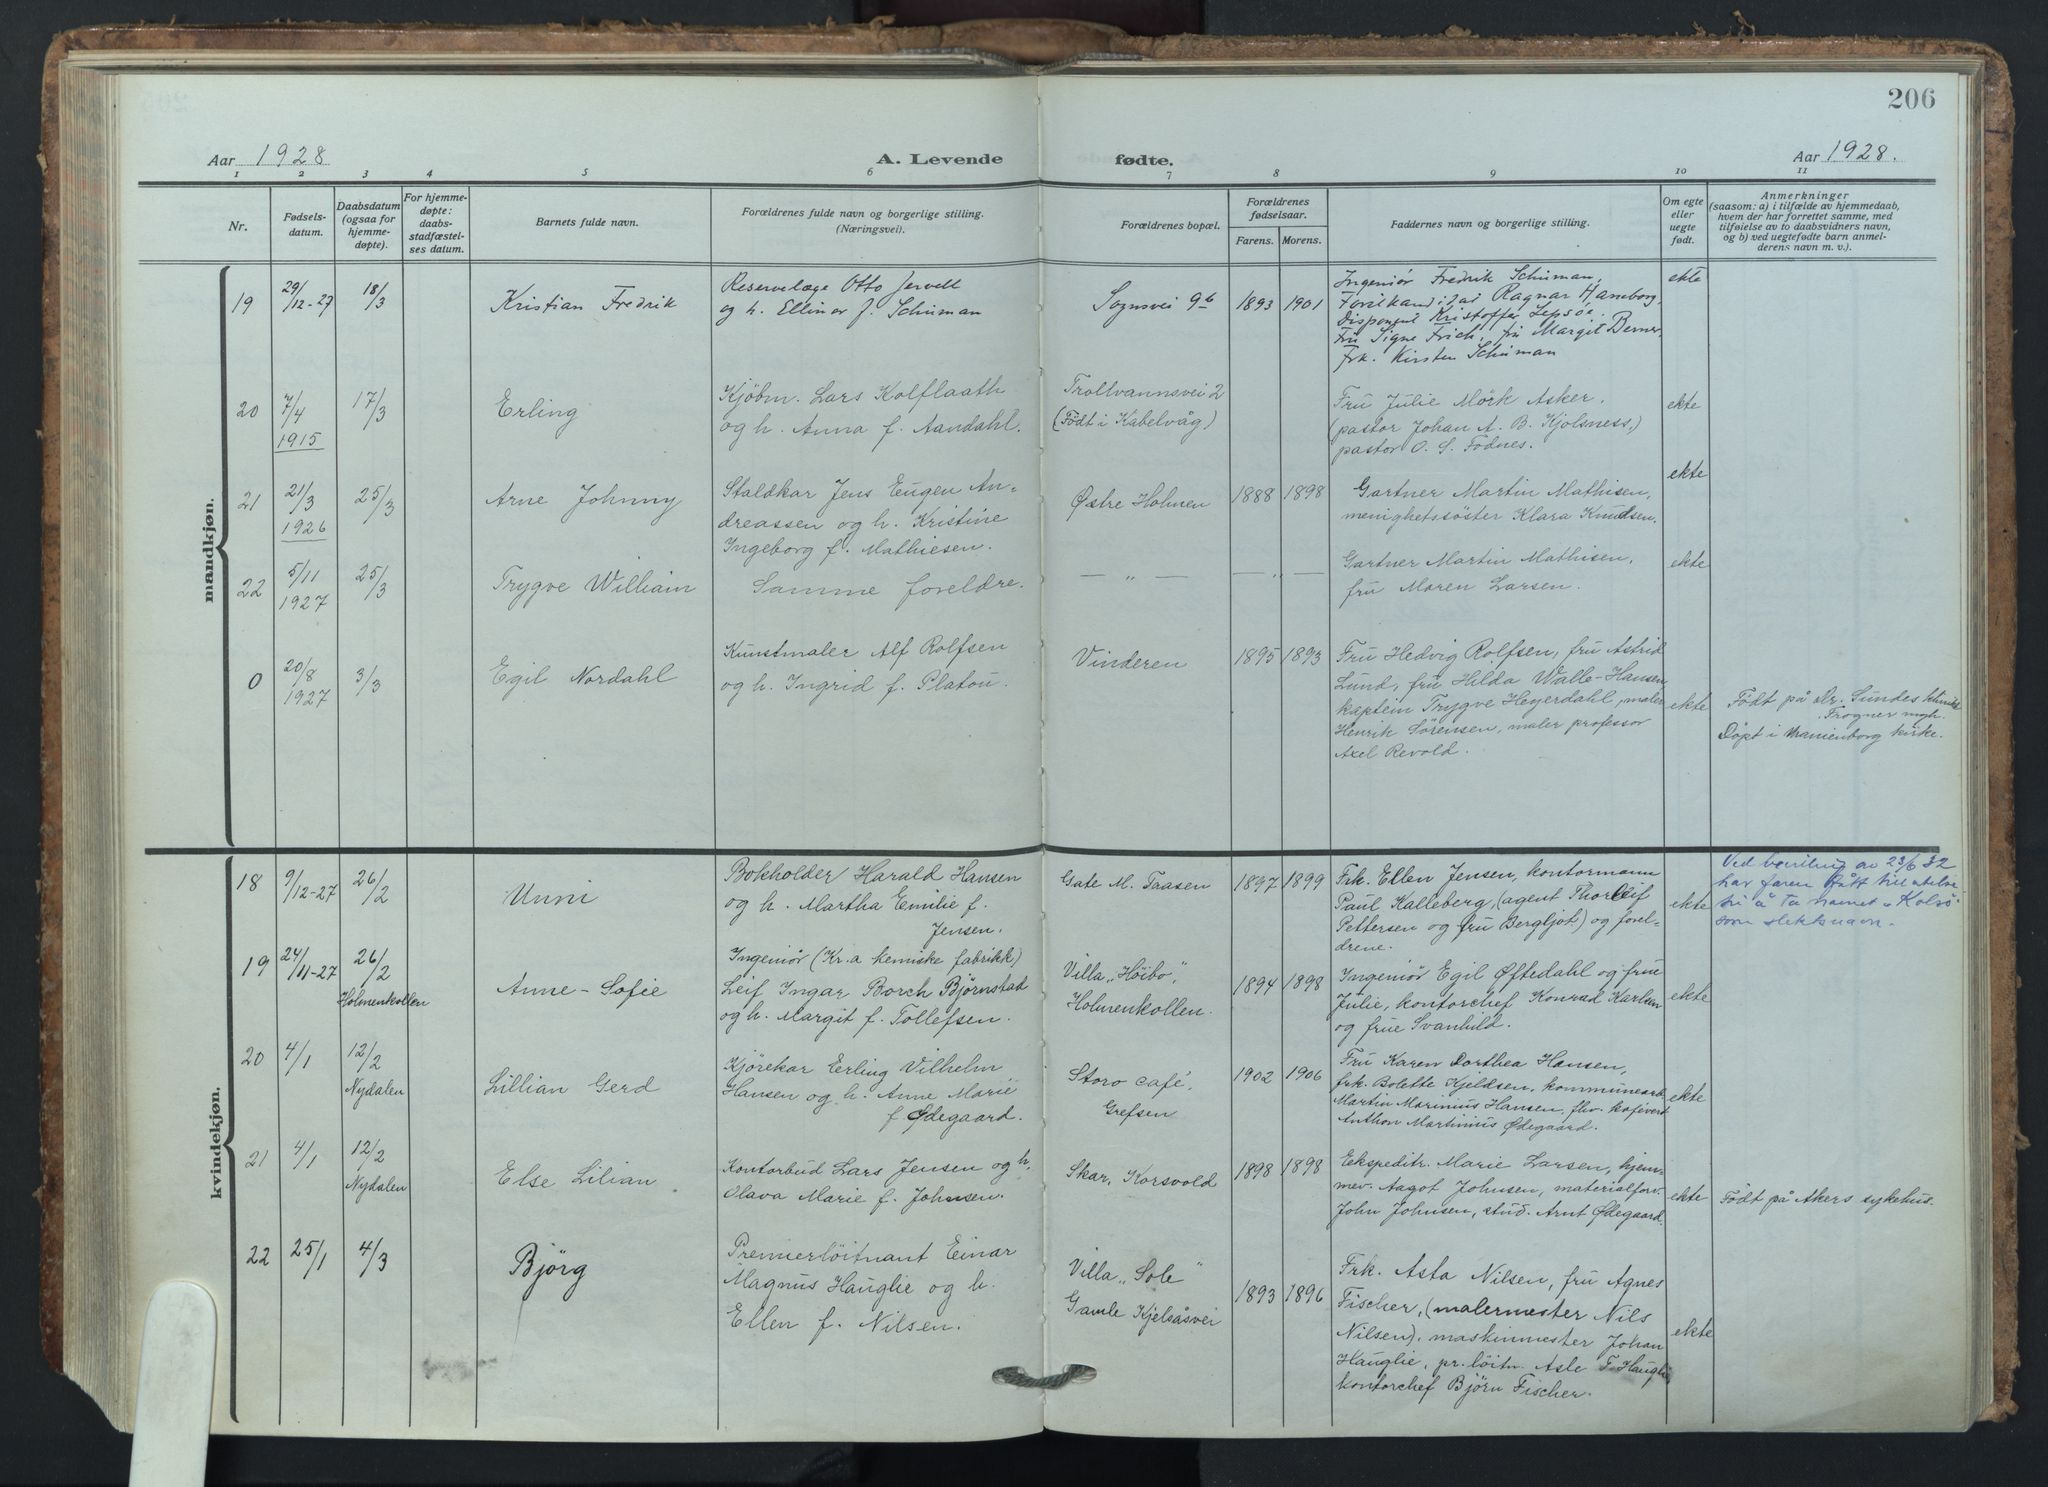 206
Aar 1928
A. Levende
fødte.
Aar 1928.
1 2 3 4 5 6 7 8 9 10 11
Nr.
Fødsels-
datum.
Daabsdatum
(ogsaa for
hjemme-
døpte).
For hjemme-
døpte:
daabs-
stadfæstel-
ses datum.
Barnets fulde navn.
Forældrenes fulde navn og borgerlige stilling.
(Næringsvei).
Forældrenes bopæl.
Forældrenes
fødselsaar.
Farens. Morens.
Faddernes navn og borgerlige stilling.
Om egte
eller
uegte
født.
Anmerkninger
(saasom: a) i tilfælde av hjemmedaab,
hvem der har forrettet samme, med
tilføielse av to daabsvidners navn,
og b) ved uegtefødte barn anmel-
derens navn m. v.).
mandkjøn.
19
29/12-27
18/3
Kristian Fredrik
Reservelæge Otto Jervell
og h. Ellinor f. Schuman
Sognsvei 9b
1893 1901
Ingeniør Fredrik Schuman,
Ragnar Haneborg.
Disponent Kristoffer Lepsøe.
Fru Signe Frich, fru Margit Berner,
Frk. Kirsten Schuman
ekte
20
7/4
1915
17/3
Erling
Kjøbm. Lars Kolflaath
og h. Anna f. Aandahl.
Trollvannsvei 2
(Født i Kabelvåg)
Fru Julie Mörk Asker.
(pastor Johan A. B. Kjolsness,)
pastor O. S. Födnes.
ekte
21
21/3
1926
25/3
Arne Johnny
Staldkar Jens Eugen An-
dreassen og h. Kristine
Ingeborg f. Mathiesen.
Østre Holmen
1888 1898
Gartner Martin Mathisen,
menighetssöster Klara Knudsen.
ekte
22
5/11
1927
25/3
Trygve William
Samme foreldre.
— „ —
— „ —
Gartner Martin Mathisen,
fru Maren Larsen.
ekte
0
20/8
1927
3/3
Egil Nordahl
Kunstmaler Alf Rolfsen
og h. Ingrid f. Platou.
Vinderen
1895 1893
Fru Hedvig Rolfsen, fru Astrid
Lund, fru Hilda Walle-Hansen
kaptein Trygve Heyerdahl, maler
Henrik Sørensen, maler professor
Axel Revold.
ekte
Födt på Dr. Sundes klinikk
Frogner mgh.
Döpt i Uranienborg kirke.
kvindekjøn.
18
9/12-27
26/2
Unni
Bokholder Harald Hansen
og h. Martha Emilie f.
Jensen.
Gate M. Taasen
1897 1899
Frk. Ellen Jensen, kontormann
Paul Kalleberg, (agent Thorleif
Pettersen og fru Bergljot) og forel-
drene.
ekte
Ved bevilling av 23/6 32
har faren fått tillatelse
til å ta navnet
som slektsnavn.
19
24/11-27
26/2
Holmenkollen
Anne-Sofie
Ingeniør (Kr.a kemiske fabrikk)
Leif Ingar Borch Björnstad
og h. Margit f. Tollefsen.
Villa „Höibo",
Holmenkollen.
1894 1898
Ingeniör Egil Øftedahl og frue
Julie, kontorchef Konrad Karlsen
og frue Svanhild.
ekte
20
4/1
12/2
Nydalen
Lillian Gerd
Kjörekar Erling Vilhelm
Hansen og h. Anne Marie
f Ødegaard.
Storo café,
Grefsen
1902 1906
Fru Karen Dorthea Hansen,
frk. Bolette Kjeldsen, kommunearb.
Martin Marinius Hansen, fhv. kafévert
Anthon Martinius Ødegaard.
ekte
21
4/1
12/2
Nydalen
Else Lilian
Kontorbud Lars Jensen og h.
Olava Marie f. Johnsen.
Skar, Korsvold
1898 1898
Ekspeditr. Marie Larsen, hjem-
mev. Aagot Johnsen, materialforv.
John Johnsen, stud. Arnt Ødegaard.
ekte
Födt på Akers sykehus.
22
25/1
4/3
Bjørg
Premierlöitnant Einar
Magnus Hauglie og h.
Ellen f. Nilsen.
Villa „Sole"
Gamle Kjelsåsvei
1893 1896
Frk. Asta Nilsen, fru Agnes
Fischer, (malermester Nils
Nilsen), maskinmester Johan
Hauglie, pr. löitn. Asle T. Hauglie
kontorchef Björn Fischer.
ekte